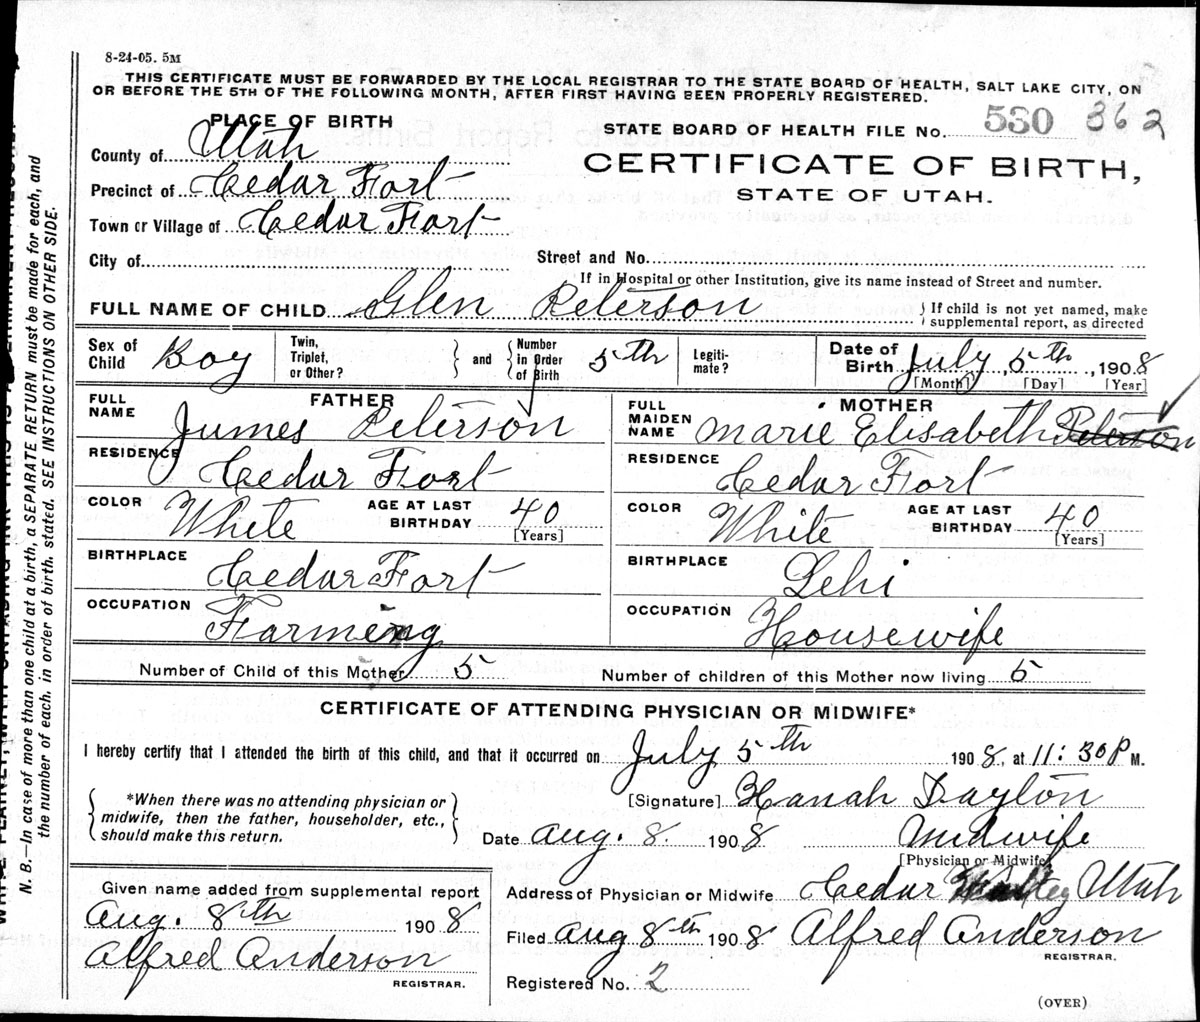 8-24-05. 5M
THIS CERTIFICATE MUST BE FORWARDED BY THE LOCAL REGISTRAR TO THE STATE BOARD OF HEALTH, SALT LAKE CITY, ON
OR BEFORE THE 5TH OF THE FOLLOWING MONTH, AFTER FIRST HAVING BEEN PROPERLY REGISTERED.
PLACE OF BIRTH
STATE BOARD OF HEALTH FILE No. 530 362
County of Utah
CERTIFICATE OF BIRTH,
Precinct of Cedar Fort
STATE OF UTAH.
Town or Village of Cedar Fort
City of Street and No.
If in Hospital or other Institution, give its name instead of Street and number.
FULL NAME OF CHILD Glen Peterson { If child is not yet named, make
supplemental report, as directed
Sex of Child Boy Twin, Triplet, or Other? } and { Number in Order of Birth 5th Legiti-mate? Date of Birth July, 5th, 1908
[Month] [Day] [Year]
FATHER
FULL NAME James Peterson
RESIDENCE Cedar Fort
COLOR White AGE AT LAST BIRTHDAY 40
[Years]
BIRTHPLACE Cedar Fort
OCCUPATION Farming
MOTHER
FULL MAIDEN NAME Marie Elisabeth Peterson
RESIDENCE Cedar Fort
COLOR White AGE AT LAST BIRTHDAY 40
[Years]
BIRTHPLACE Lehi
OCCUPATION Housewife
Number of Child of this Mother 5 Number of children of this Mother now living 5
CERTIFICATE OF ATTENDING PHYSICIAN OR MIDWIFE*
I hereby certify that I attended the birth of this child, and that it occurred on July 5th 1908, at 11:30 P M.
{ *When there was no attending physician or
midwife, then the father, householder, etc.,
should make this return. }
[Signature] Hanah Dayton
Date Aug. 8. 1908 Midwife
[Physician or Midwife]
Given name added from supplemental report
Aug. 8th 1908
Alfred Anderson
REGISTRAR.
Address of Physician or Midwife Cedar Utah
Filed Aug 8th 1908 Alfred Anderson
REGISTRAR.
Registered No. 2
(OVER)
N. B.—In case of more than one child at a birth, a SEPARATE RETURN must be made for each, and
the number of each, in order of birth, stated. SEE INSTRUCTIONS ON OTHER SIDE.